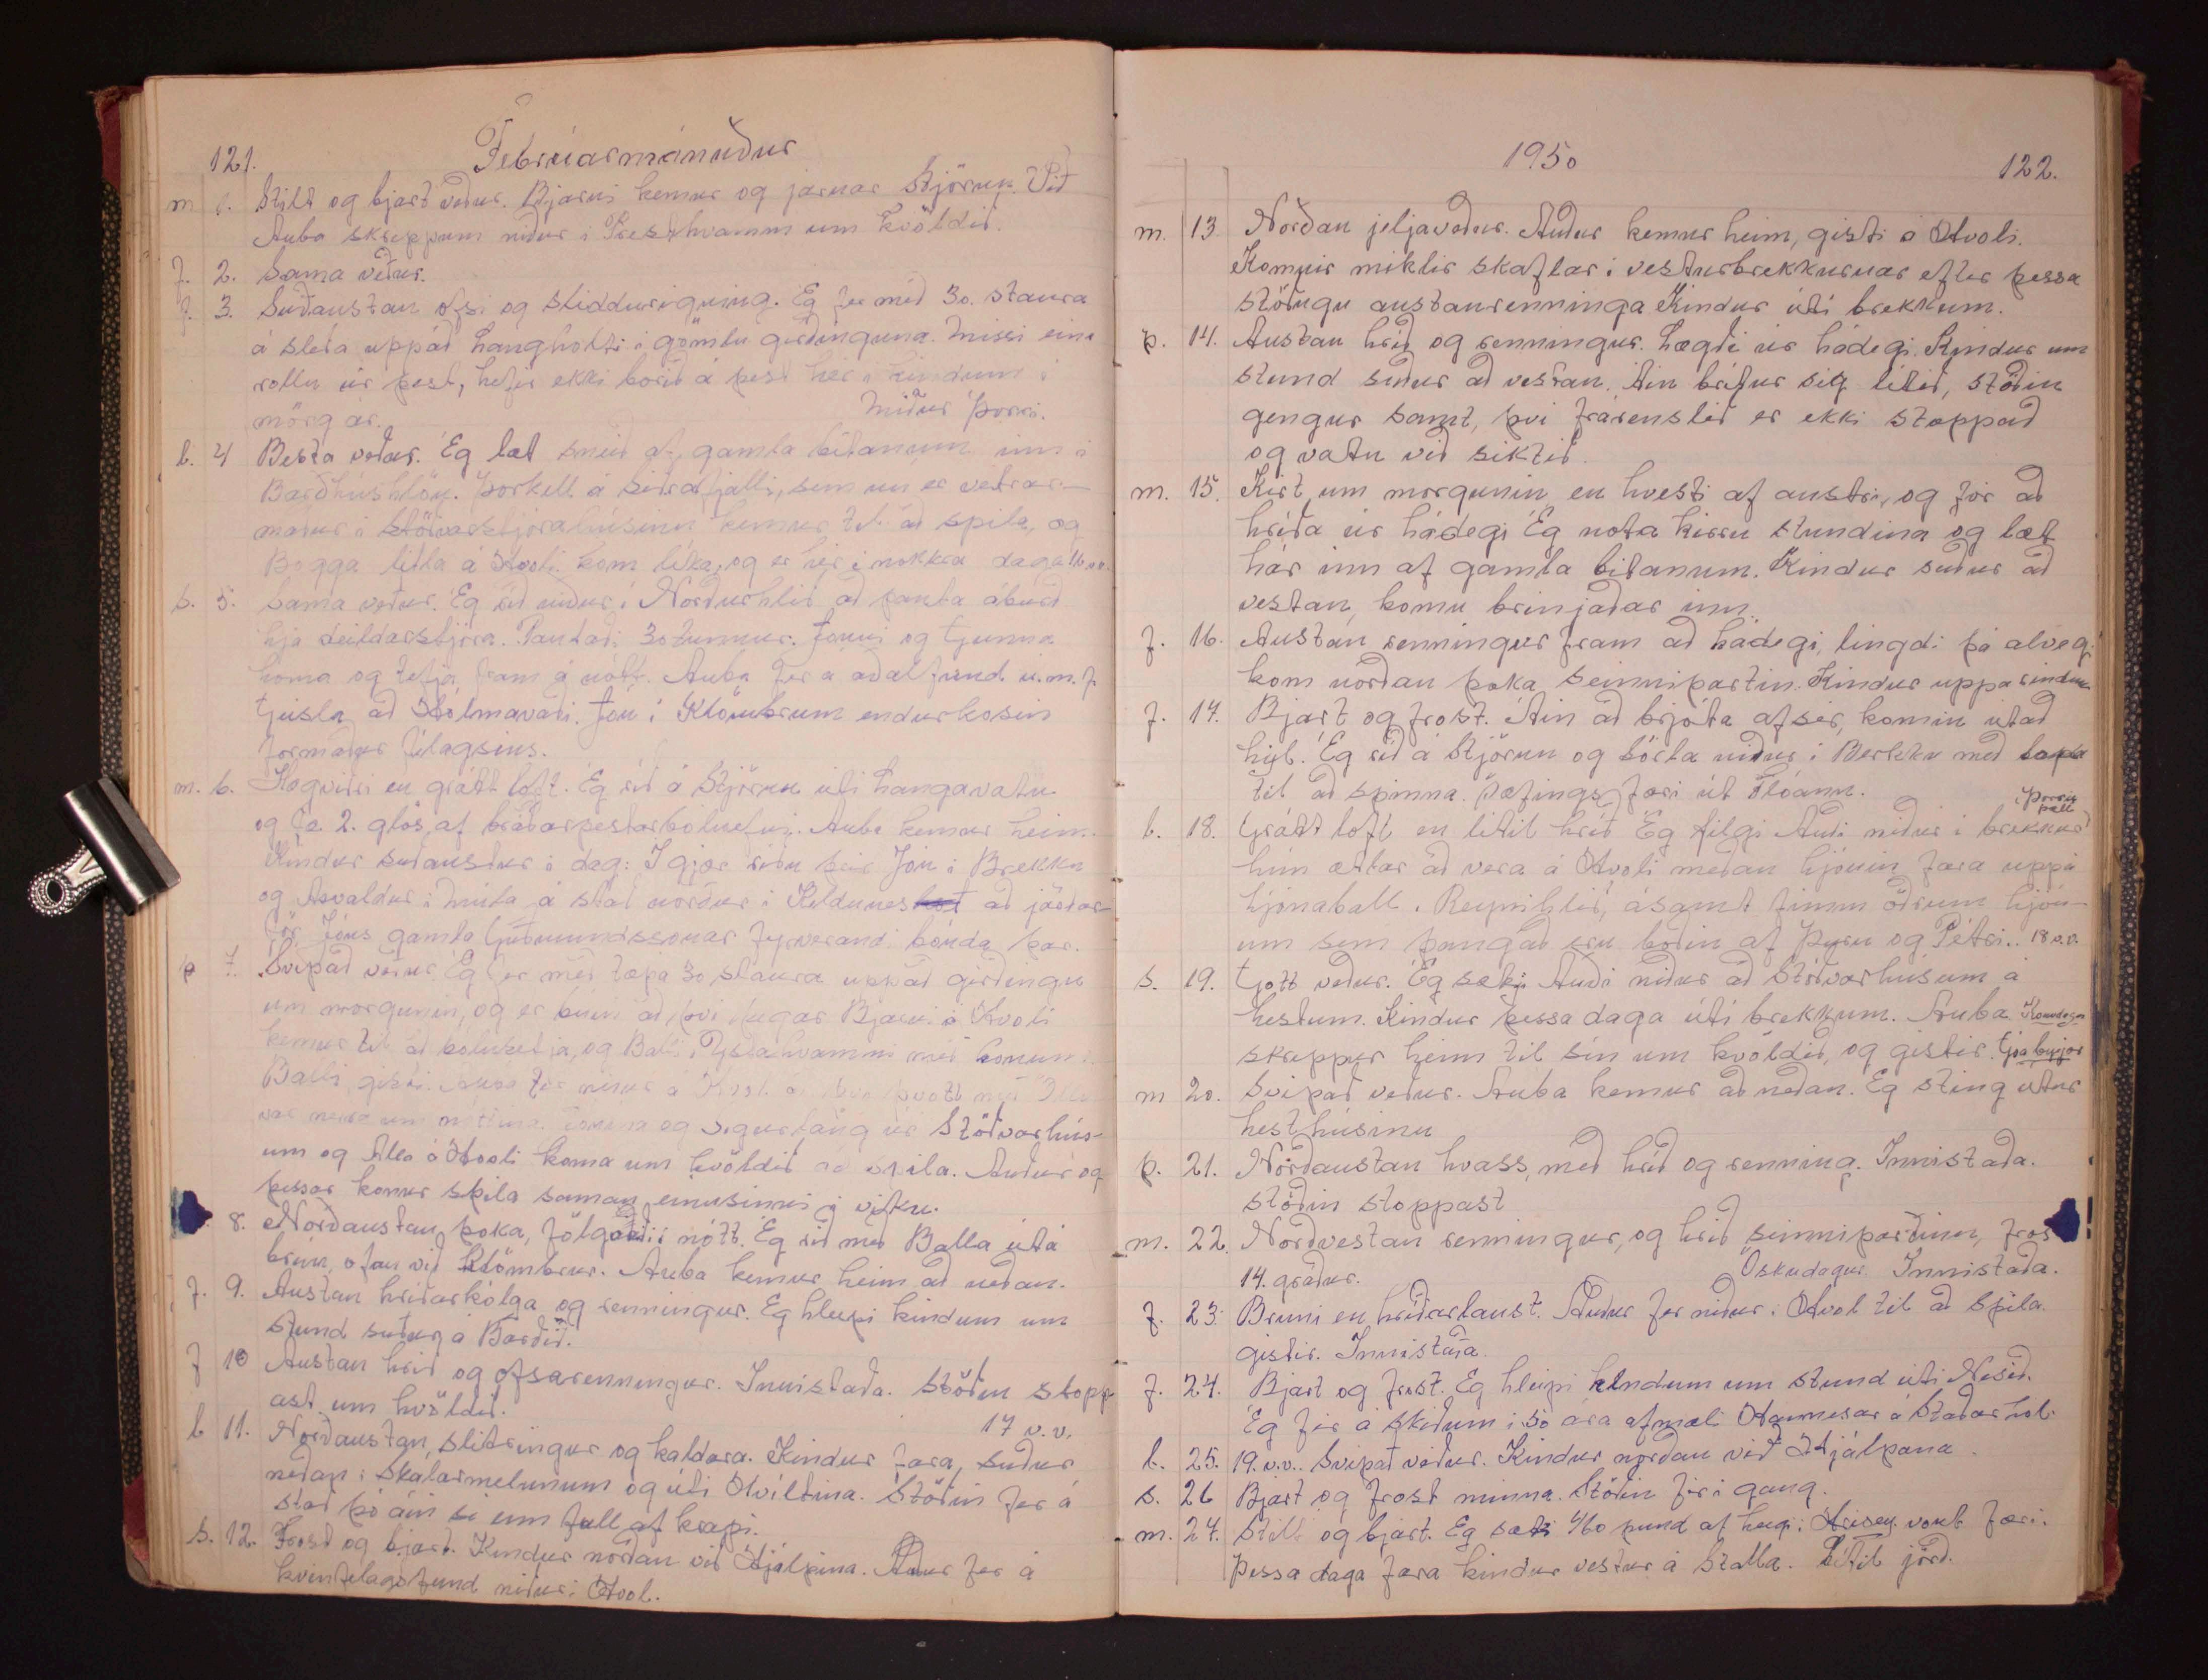 121.
Febrúarmánuður
m 1. Stilt og bjart veður. Bjarni kemur og járnar Stjörnu. Við
Auba skreppum niður í Presthvamm um kvöldið.
f. 2. Sama veður.
f. 3. Suðaustan ofsi og sliddurigning. Eg fer með 30. staura
á sleða uppað Langholti í gömlu girðinguna. Missi eina
rollu úr pest, hefir ekki borið á pest hér í kindum í
mörg ár. Miður þorri.
l. 4 Besta veður. Eg læt snúið af gamla bitanum inn í
Barðhúshlöð. Þorkell á Síðrafjalli, sem nú er vetrar-
maður í Stöðvarstjórahúsinu kemur til að spila, og
Bogga litla á Hvoli kom líka, og er hér í nokkra daga 16 v.v.
s. 5. Sama veður. Eg ríð niður í Norðurhlíð að panta áburð
hjá deildarstjóra. Pantaði 30 tunnur. Jonni og Gunna
koma og tefja fram á nótt. Auba fer á aðalfund u.m.f.
Geisla að Hólmavaði. Jón í Klömbrum endurkosin
formaður félagsins.
m. 6. Hægviðri en grátt loft. Eg ríð á Stjörnu útí Langavatn
og fæ 2. glös af bráðapestarbóluefni. Auba kemur heim.
Kindur suðaustur í dag: Í gjær riðu þeir Jón í Brekku
og Ásvaldur í Múla á stað norður í Keldunes að jarðar-
för Jóns gamla Guðmundssonar fyrverandi bónda þar.
þ 7. Svipað veður Eg fer með tæpa 30 staura uppað girðingu
um morgunin, og er búin að því þegar Bjarni á Hvoli
kemur til að bólusetja, og Balli í Ystahvammi með honum.
Balli gisti. Auba fer niður á Hvol
var neðra um nóttina. Tomma og Sigurlaug úr Stöðvarhús-
um og Alla á Hvoli koma um kvöldið að spila. Auður og
þessar konur spila saman einusinni í viku.
8. Norðaustan þoka, fölgaði í nótt. Eg ríð með Balla útá
brún, ofan við Klömbrur. Auba kemur heim að neðan.
f. 9. Austan hríðarkólga og renningur. Eg hleypi kindum um
stund suður á Barðið.
f 10 Austan hríð og ofsarenningur. Innistaða. Stöðin stopp-
ast um kvöldið.
l 11. Norðaustan slitringur og kaldara. Kindur fara suður 17 v.v.
neðan í Skálarmelunum og úti Hvíltina. Stöðin fer á
stað þó áin sé enn full af krapi.
s. 12. Frost og bjart. Kindur norðan við Hjálpina. Auður fer á
kvinfelagsfund niður í Hvol.
1950
122.
m. 13 Norðan jeljaveður. Auður kemur heim, gisti á Hvoli.
Komnir miklir skaflar í vesturbrekkurnar efter þessa
stöðugu austanrenninga Kindur útí brekkum.
þ. 14. Austan hríð og renningur. Lægði úr hádegi. Kindur um
stund suður að vestan. Áin bráður sig lítið, stöðin
gengur samt, því frárenslið er ekki stoppað
og vatn við siktið.
m. 15. Kirt um morgunin en hvesti af austri, og fór að
hríða úr hádegi Eg nota kirru stundina og læt
hár inn af gamla bitanum. Kindur suður að
vestan, komu brinjaðar inn.
f. 16. Austan renningur fram að hádegi, lingdi þá alveg
kom norðan þoka seinnipartin. Kindur uppá rindum
f. 17. Bjart og frost. Áin að brjóta af sér, komin útað
hyl. Eg ríð á Stjörnu og Sörla niður í Brekku með lopa
til að spinna. Þæfings færi út Flóann.
l. 18. Grátt loft en lítil hríð Eg filgi Auði niður í brekkur Þorra þræll
hún ætlar að vera á Hvoli meðan hjónin fara uppá
hjónaball í Reynihlíð, ásamt fimm öðrum hjón-
um sem þangað eru boðin af Þuru og Pétri.. 18 v.v.
s. 19. Gott veður. Eg sæki Auði niður að Stöðvarhúsum á
hestum. Kindur þessa daga útí brekkum. Auba Konudagur
skreppur heim til sín um kvöldið, og gistir. Góa byrjar
m 20. Svipað veður. Auba kemur að neðan. Eg sting útúr
hesthúsinu
þ. 21. Norðaustan hvass, með hríð og renning. Innistaða.
stöðin stoppast
m. 22. Norðvestan renningur, og hríð seinnipartinn, fros
14. gráður. Öskudagur Innistaða.
f. 23. Bruni en hríðarlaust. Auður fer niður í Hvol til að spila.
gistir. Innistaða.
f. 24. Bjart og frost. Eg hleypi kindum um stund útí Nesið.
Eg fer á skíðum í 50 ára afmæli Hannesar á Staðarhóli
l. 25. 19. v.v.. Svipað veður. Kindur norðan við Hjálpana.
s. 26 Bjart og frost minna. Stöðin fer í gang.
m. 27. Stilt og bjart. Eg sæki 460 pund af heyi í Hrísey vont færi.
Þessa daga fara kindur vestur á Stalla. Lítil jörð.